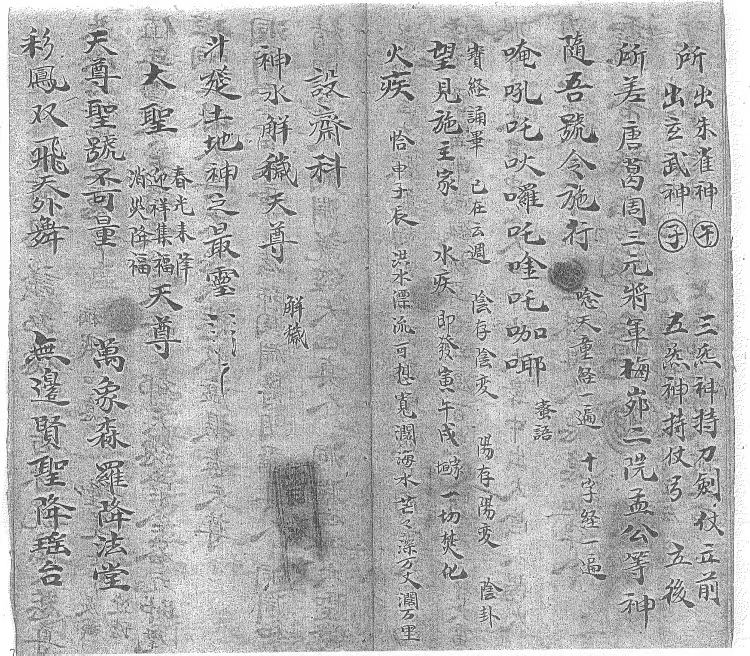 所出朱雀神午 三炁神持刀劍伩立前
所出玄武神子 五炁神持伩弓立後
所差唐葛周三元將軍梅峁二院孟公等神
隨吾號令施行 唸天童経一遍 十字経一遍
唵吼吒吙囉吒唑吒咖唧 蜜語
寶経誦畢 已在云週 陰存陰变 陽存陽变 陰卦
望見施主家 水疾 即發寅午戌 一切焚化
火疾 恰申子辰 洪水漂流可想寬濶海水茫々深万丈濶万里
設齋科
神水解穢天尊 解穢
斗
土地神之最靈
太聖 春光來降 迎祥集福 消災降福 天尊
天尊聖號不可量 萬象森羅降法堂
彩鳳双飛天外舞 無邊賢聖降瑤台